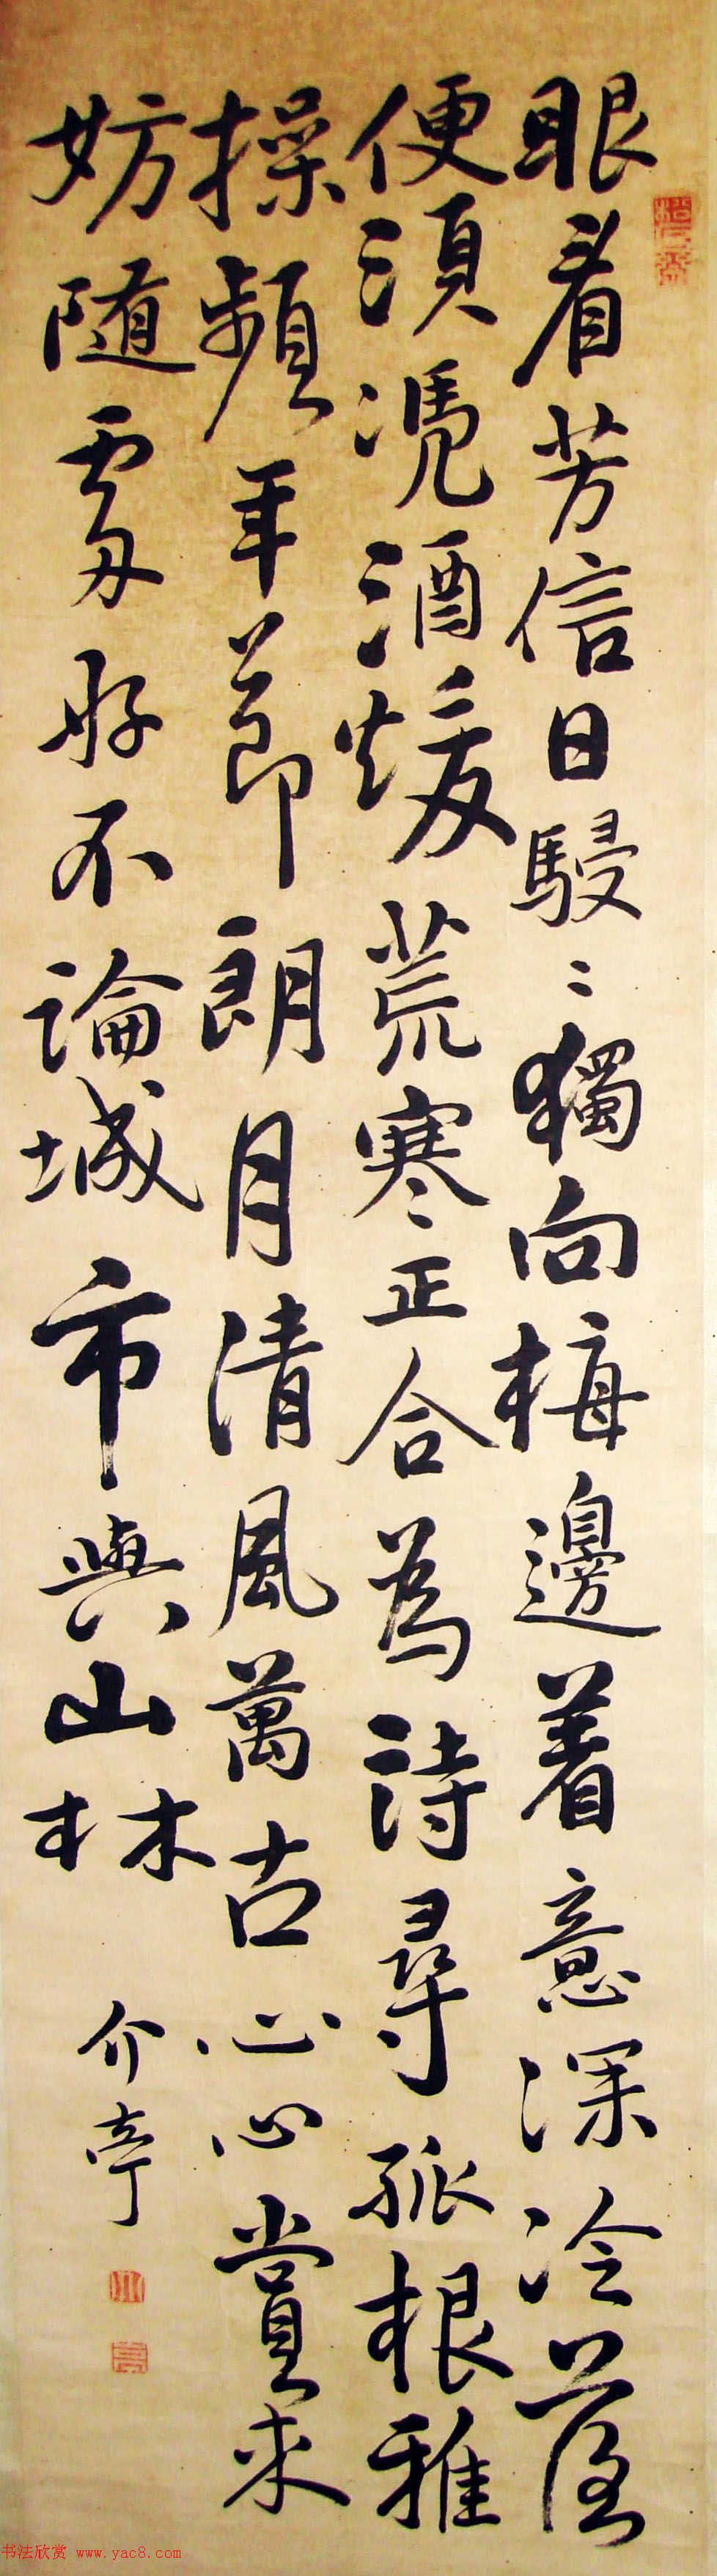 眼看芳信日駸〻獨向梅邊着意深冷落
便須凴酒煖荒寒正合為詩尋孤根雅
操頻年節朗月清風萬古心心賞来
妨随處好不論城市與山林
介亭
书法欣赏 www.yac8.com